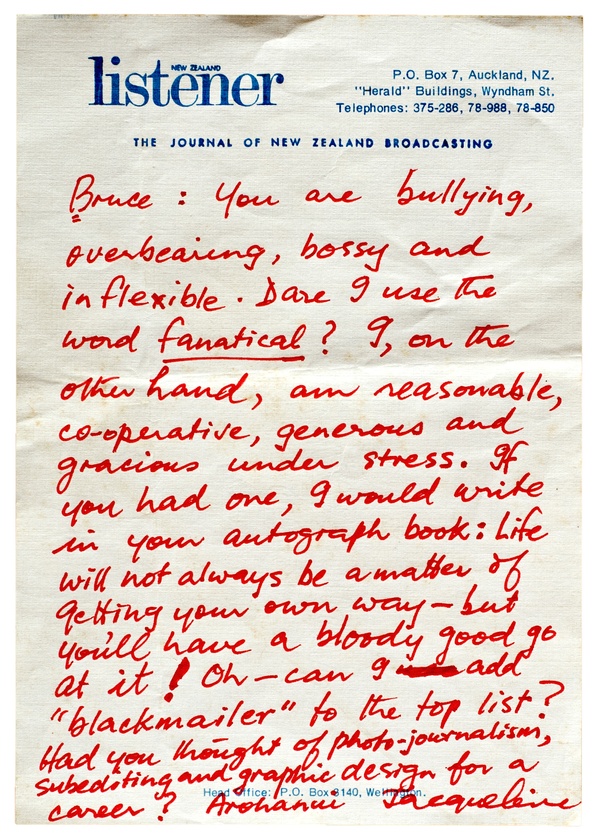 NEW ZEALAND
listener
P.O. Box 7, Auckland, NZ.
"Herald" Buildings, Wyndham St.
Telephones: 375-286, 78-988, 78-850
THE JOURNAL OF NEW ZEALAND BROADCASTING
Bruce : You are bullying,
overbearing, bossy and
inflexible. Dare I use the
word fanatical? I, on the
other hand, am reasonable,
co-operative, generous and
gracious under stress. If
you had one, I would write
in your autograph book: Life
will not always be a matter of
getting your own way – but
you'll have a bloody good go
at it! Oh – can I add
"blackmailer" to the top list?
Had you thought of photo-journalism,
subediting and graphic design for a
career? Arohanui Jacqueline
Head Office: P.O. Box 3140, Wellington.